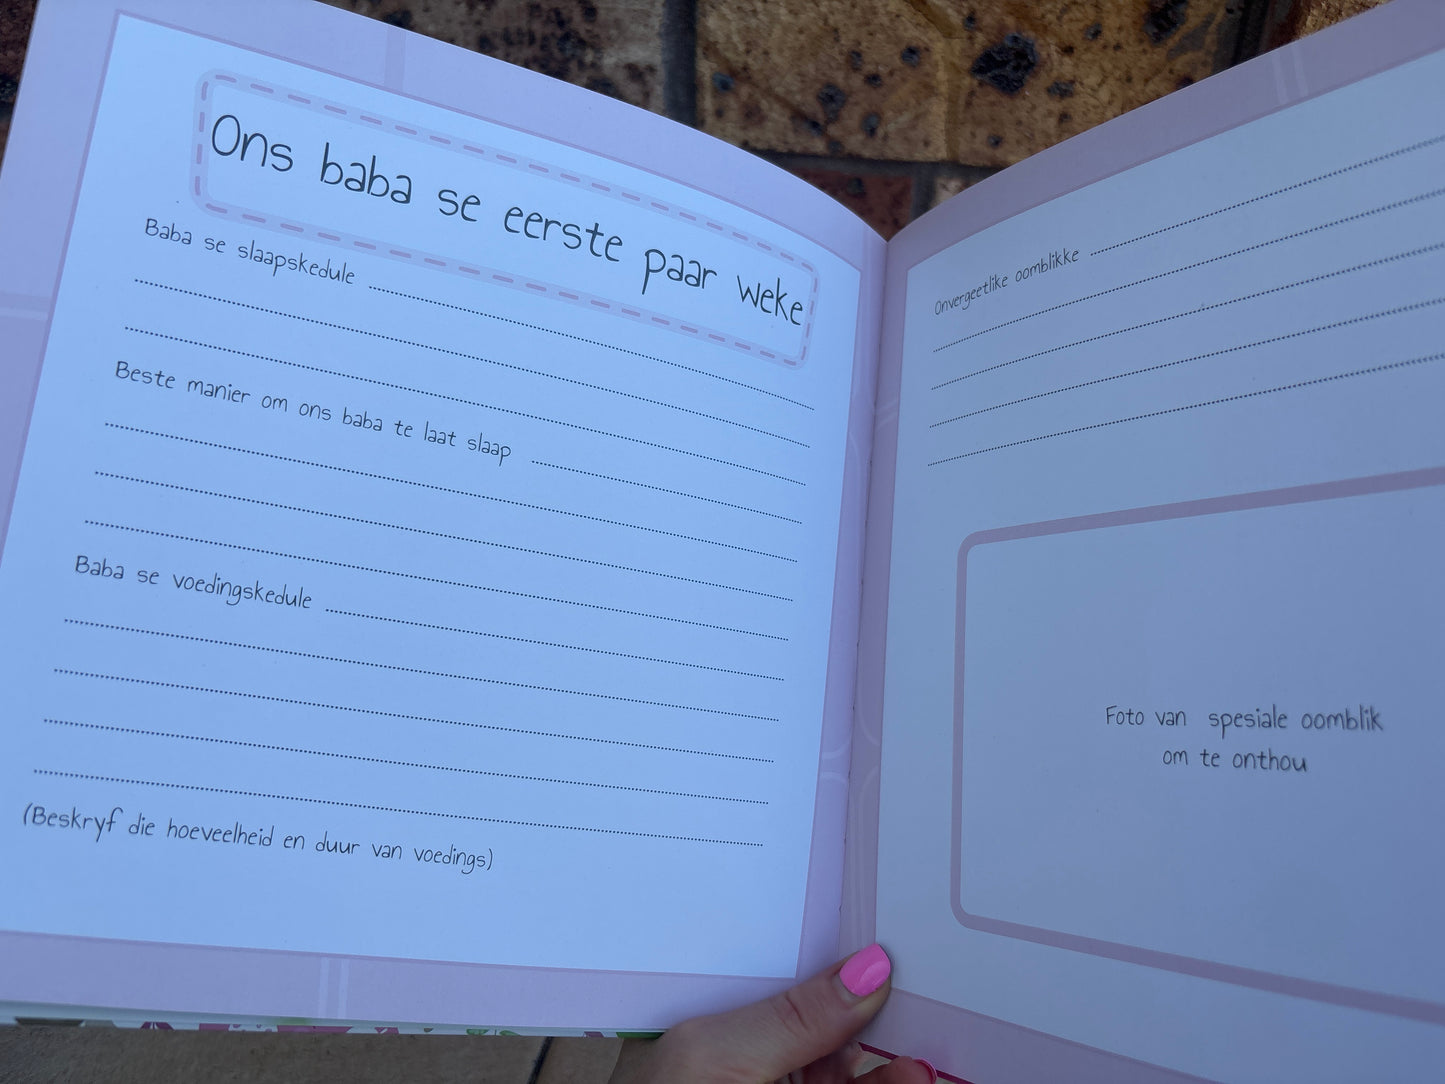 Ons baba se eerste paar weke
Baba se slaapskedule
Beste manier om ons baba te laat slaap
Baba se voedingskedule
(Beskryf die hoeveelheid en duur van voedings)
Onvergeetlike oomblikke
Foto van spesiale oomblik
om te onthou